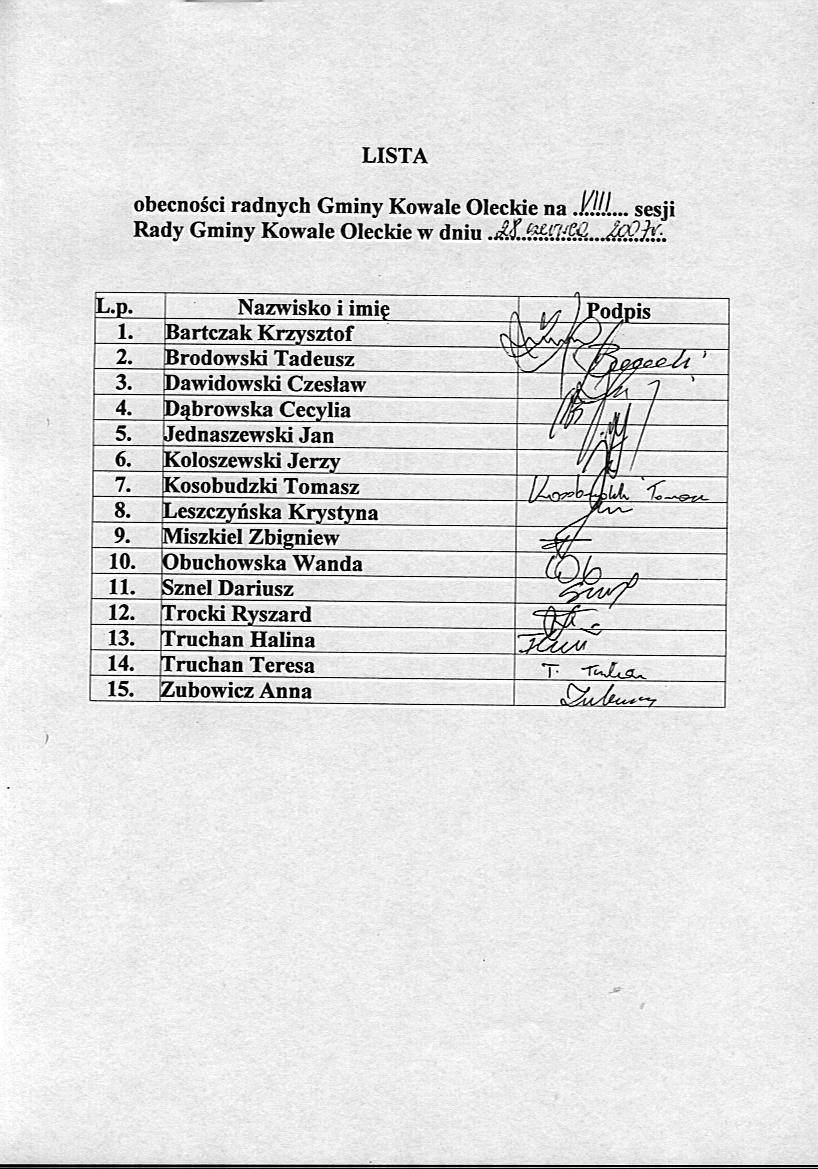 LISTA
obecności radnych Gminy Kowale Oleckie na ..VIII.... sesji
Rady Gminy Kowale Oleckie w dniu ..28 czerwca 2007r.
L.p. Nazwisko i imię Podpis
1. Bartczak Krzysztof
2. Brodowski Tadeusz
3. Dawidowski Czesław
4. Dąbrowska Cecylia
5. Jednaszewski Jan
6. Koloszewski Jerzy
7. Kosobudzki Tomasz Kosobudzki Tomasz
8. Leszczyńska Krystyna
9. Miszkiel Zbigniew
10. Obuchowska Wanda
11. Sznel Dariusz
12. Trocki Ryszard
13. Truchan Halina
14. Truchan Teresa T. Truchan
15. Zubowicz Anna